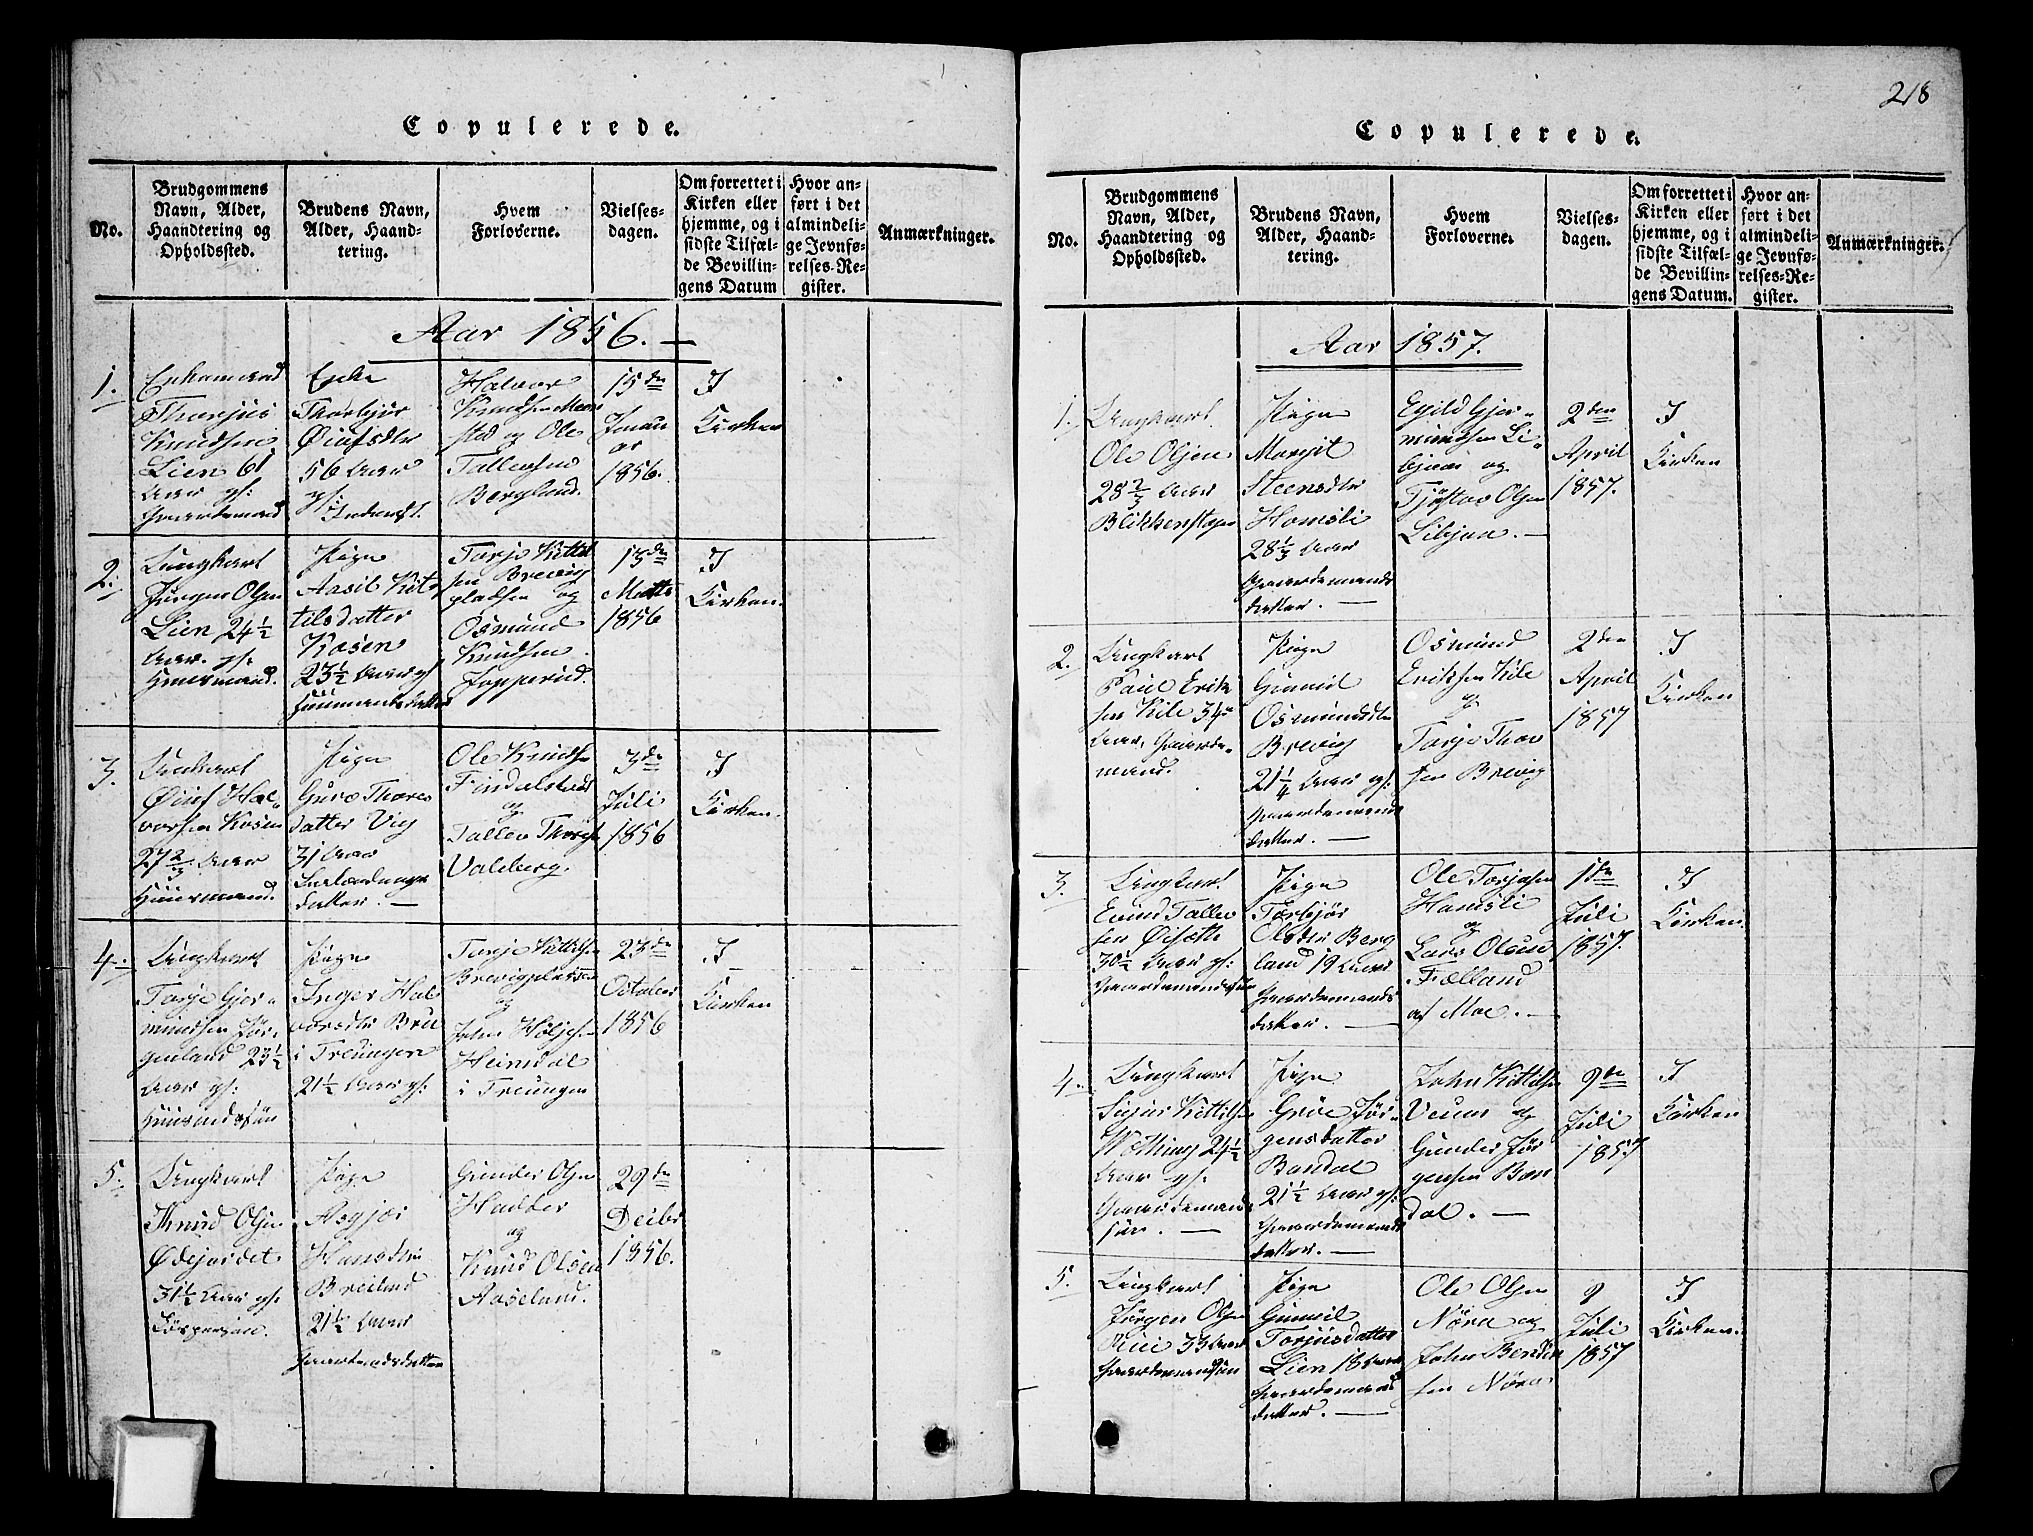 Copulerede.
No.
Brudgommens
Navn, Alder,
Haandtering og
Opholdssted.
Brudens Navn,
Alder, Haand-
tering.
Hvem
Forloverne.
Vielses-
dagen.
Om forrettet i
Kirken eller
hjemme, og i
sidste Tilfæl-
de Bevillin-
gens Datum
Hvor an-
ført i det
almindeli-
ge Jevnfø-
relses-Re-
gister.
Anmærkninger.
Aar 1856.
1.
Enkemand
Thorjus
Knudsen
Lien 61
Aar gs:
Gaardmand
Enke
Thorbjør
Øiufsdtr
56 Aar
gs:
Halvor
Knudsen
stad og Ole
Tallevsen
Bergland.
15de
Januar
1856.
I
Kirken
2.
Ungkarl
Jørgen Olsen
Lien 24½
Aar. gs:
Huusmand.
Pige
Aasil Kit-
tilsdatter
Kosen
23½ Aar gs
Huusmandsdatter
Torje Kittil
sen Brevig
pladsen og
Osmund
Knudsen
Topperud.
13de
Marts
1856
I
Kirken.
3.
Ungkarl
Øiuf Hal-
vorsen Kosen
27 2/3 Aar
Huusmand.
Pige
Guro Thores
datter Vig
31 Aar
datter. —
Ole Knudsen
Findalstad
og
Tallev
Valeberg.
3de
Juli
1856
I
Kirken.
4.
Ungkarl
Torje Gjer-
mundsen Jør-
genland 23½
Aar gs:
Huusmandssøn
Pige
Inger Hal
vorsdtr Bru
i Treungen
21½ Aar gs:
Torje Kittilsen
Brevigpladsen
og
John
Heimdal
i Treungen
23de
October
1856
I
Kirken
5.
Ungkarl
Knud Olsen
Ødejordet
31½ Aar gs:
Pige
Asgjør
Hansdtr
Breiland
21½ Aar
Gaardmandsdatter
Gunder Olsen
Hadder
og
Knud Olsen
Aaseland.
29de
Decbr
1856.
218
Copulerede.
No.
Brudgommens
Navn, Alder,
Haandtering og
Opholdssted.
Brudens Navn,
Alder, Haand-
tering.
Hvem
Forloverne.
Vielses-
dagen.
Om forrettet i
Kirken eller
hjemme, og i
sidste Tilfæl-
de Bevillin-
gens Datum.
Hvor an-
ført i det
almindeli-
ge Jevnfø-
relses-Re-
gister.
Anmærkninger.
Aar 1857.
1.
Ungkarl
Ole Olsen
28 2/3 Aar
Pige
Margit
Steensdtr
Homsli
28⅓ Aar
Gaardemands
datter. —
Egild Gjer-
mundsen Li-
bjaae og
Olsen
Libjaa. —
2den
April
1857.
I
Kirken
2.
Ungkarl
Paul Erik
sen Kile 34
Aar, Gaarde-
mand.
Pige
Gunnil
Osmundsdtr
Brevig
21¼ Aar gs:
Gaardemands
datter. —
Osmund
Eriksen Kile
og
Torje Thor
sen Brevig
2den
April
1857
I
Kirken
3.
Ungkarl
Evind Tallev
sen Øisæth
30½ Aar gs:
Gaardemandssøn
Pige
Torbjør
Olsdtr Berg
land 19 Aar
Gaardemands
datter. —
Ole Torjesen
Hamsli
og
Lars Olsen
Fælland
af Moe. —
1ste
Juli
1857.
I
Kirken
4.
Ungkarl
Kittilsen
24½
Aar gs.
Gaardemands
søn. —
Pige
Groe Jør-
gensdatter
Bandal
21½ Aar gs:
Gaardemands
datter. —
John Kittilsen
og
Gunder Jør
gensen Ban
dal. —
9de
Juli
1857
I
Kirken
5.
Ungkarl
Jørgen Olsen
33 Aar
Gaardemandssøn
Pige
Gunnil
Torjusdatter
Lien 18 Aar
Gaardemands
datter. —
Ole Olsen
Nøra og
John Bendix
sen Nøra
9
Juli
1857
I
Kirken.